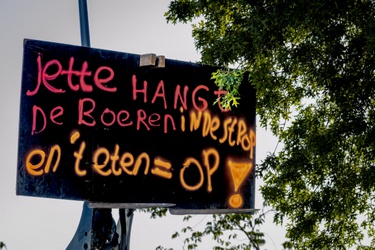 Jette HANGT
De BOEREN iNDeStROP
en 't eten = OP !